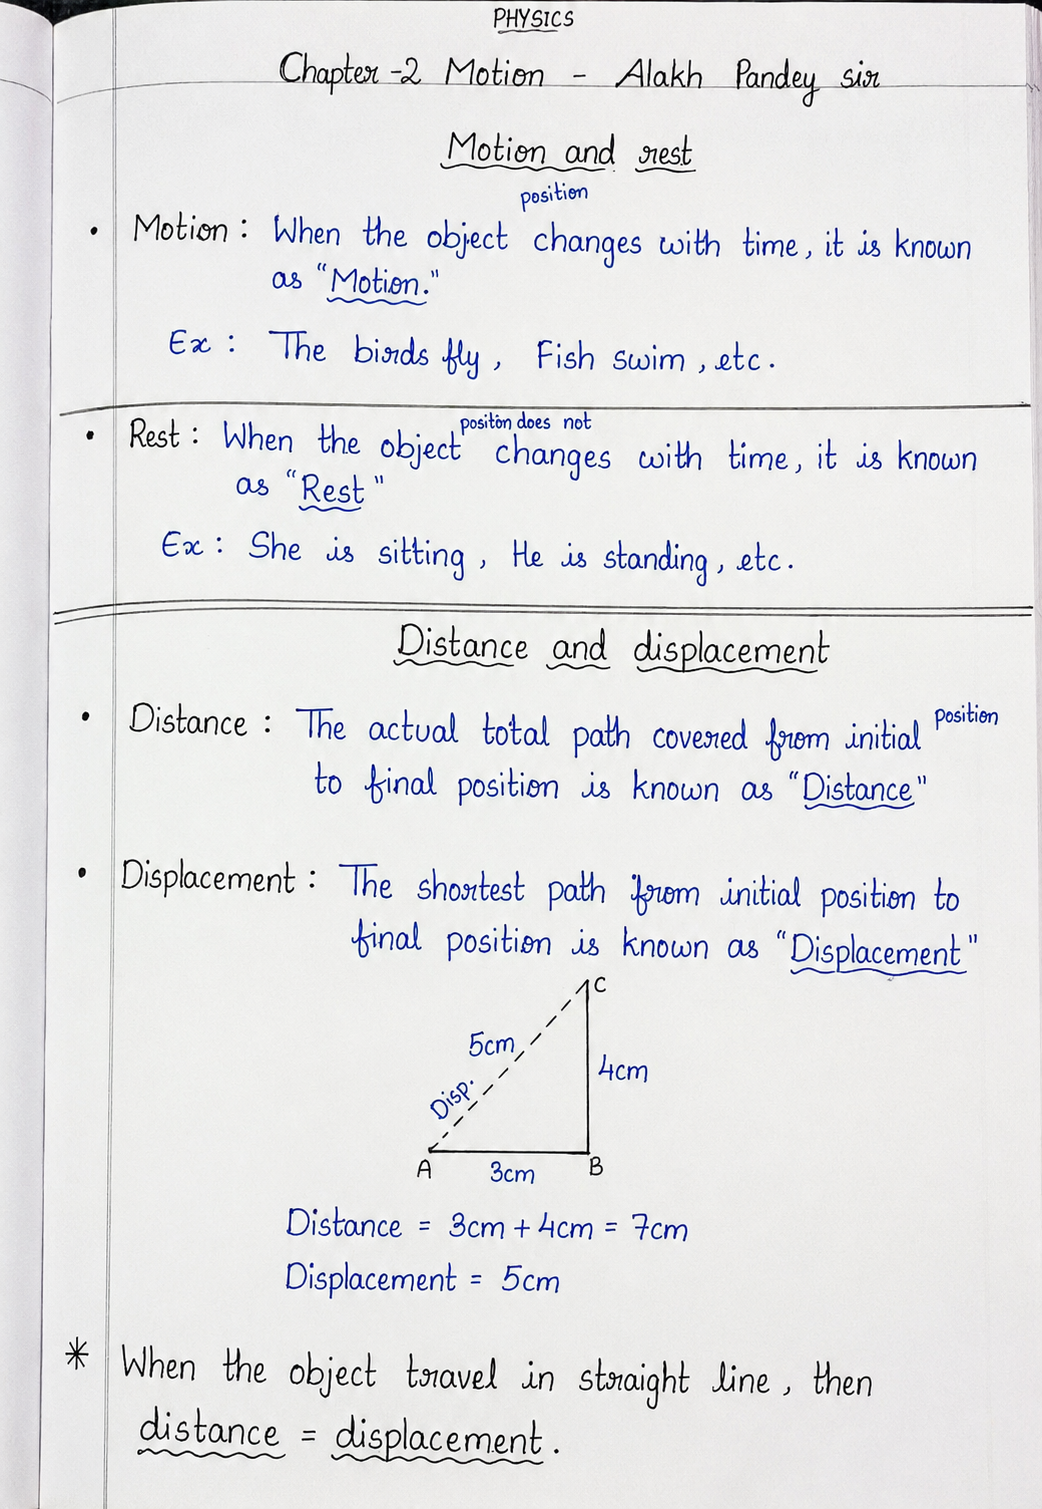 PHYSICS
Chapter -2 Motion - Alakh Pandey sir
Motion and rest
position
• Motion : When the object changes with time, it is known
as "Motion."
Ex : The birds fly, Fish swim, etc.
positon does not
• Rest : When the object changes with time, it is known
as "Rest"
Ex : She is sitting, He is standing, etc.
Distance and displacement
• Distance : The actual total path covered from initial position
to final position is known as "Distance"
• Displacement : The shortest path from initial position to
final position is known as "Displacement"
C
5cm
4cm
Disp.
A
3cm
B
Distance = 3cm + 4cm = 7cm
Displacement = 5cm
* When the object travel in straight line, then
distance = displacement.